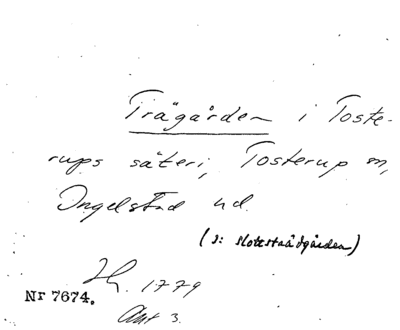 Trägården i Toste-
rups säteri, Tosterup sn,
Ingelstad hd.
(ɔ: slottsträdgården)
H. 1779
Nr 7674.
Akt 3.